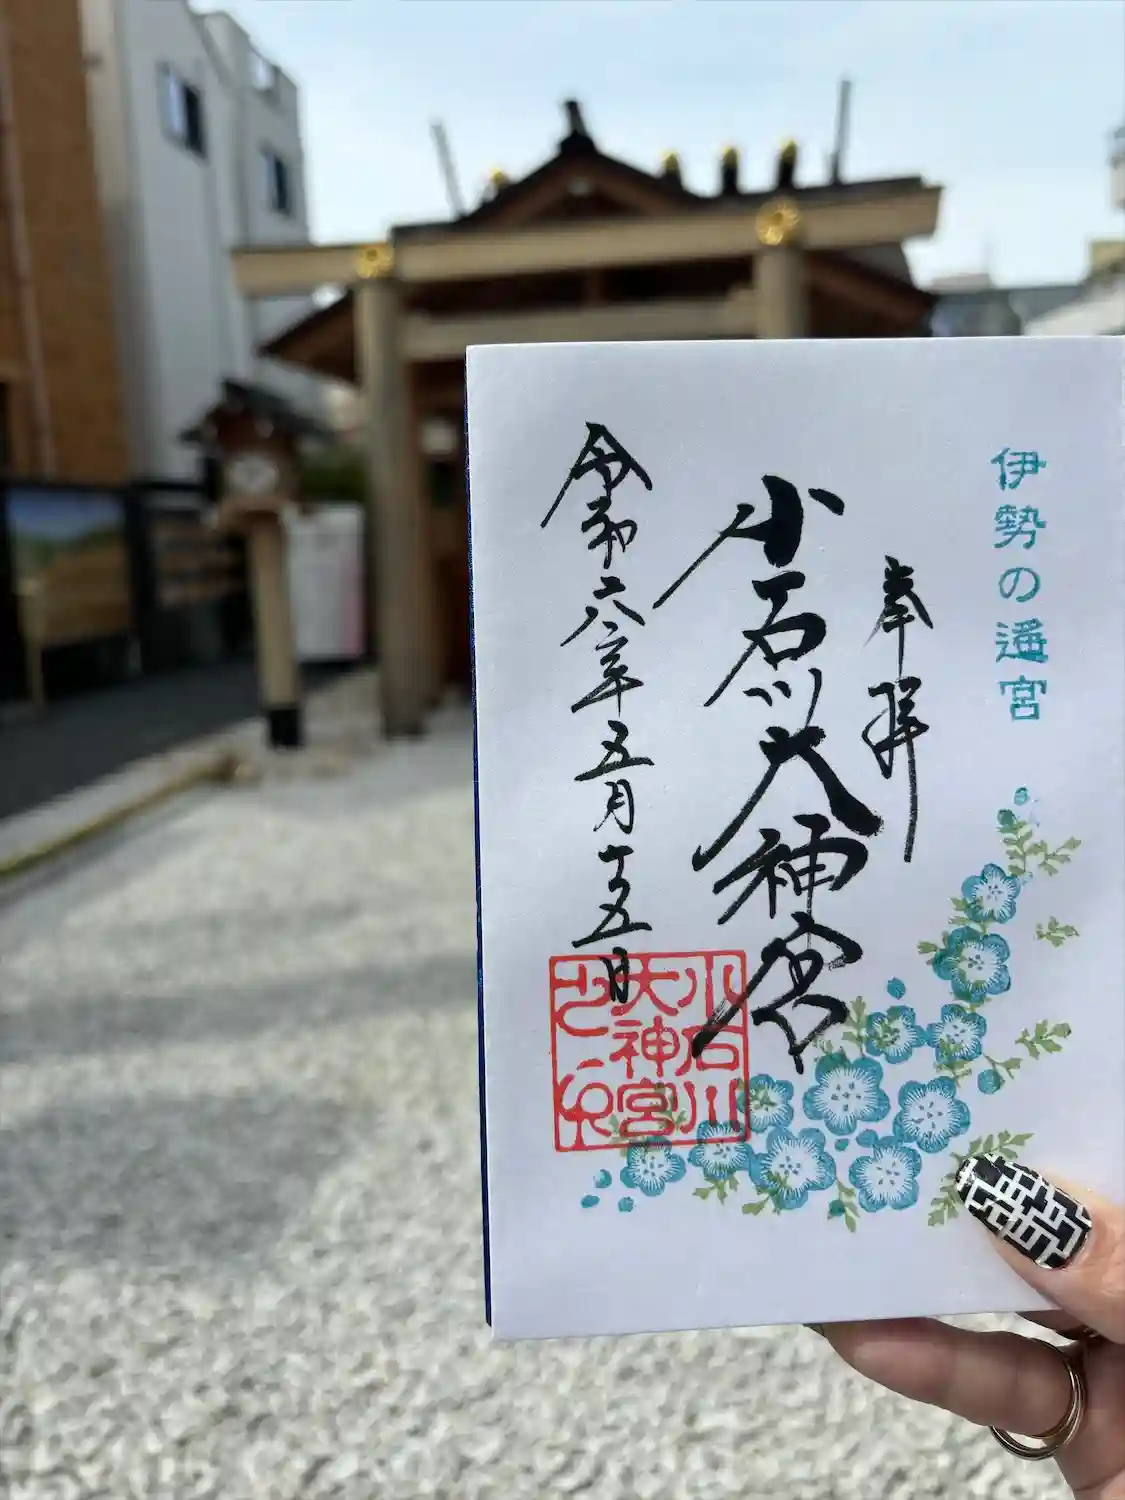 伊勢の遥宮
奉拝
小石川大神宮
令和六年五月十五日
小石川
大神宮